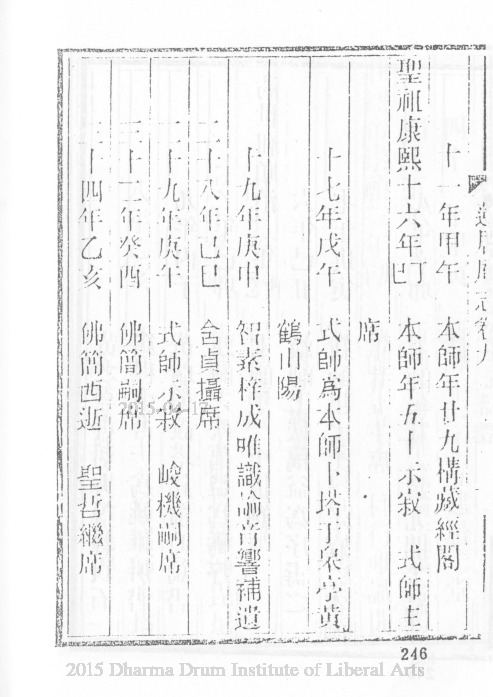 十一年甲午　本師年廿九構藏經閣
聖祖康熙十六年丁巳　本師年五十示寂　式師主
席
十七年戊午　式師爲本師卜塔于泉亭黃
鶴山陽
十九年庚申　智素梓成唯識論音響補遺
二十八年己巳　含貞攝席
二十九年庚午　式師示寂　峻機嗣席
三十二年癸酉　佛簡嗣席
三十四年乙亥　佛簡西逝　聖哲繼席
2015.04.17
246
2015 Dharma Drum Institute of Liberal Arts